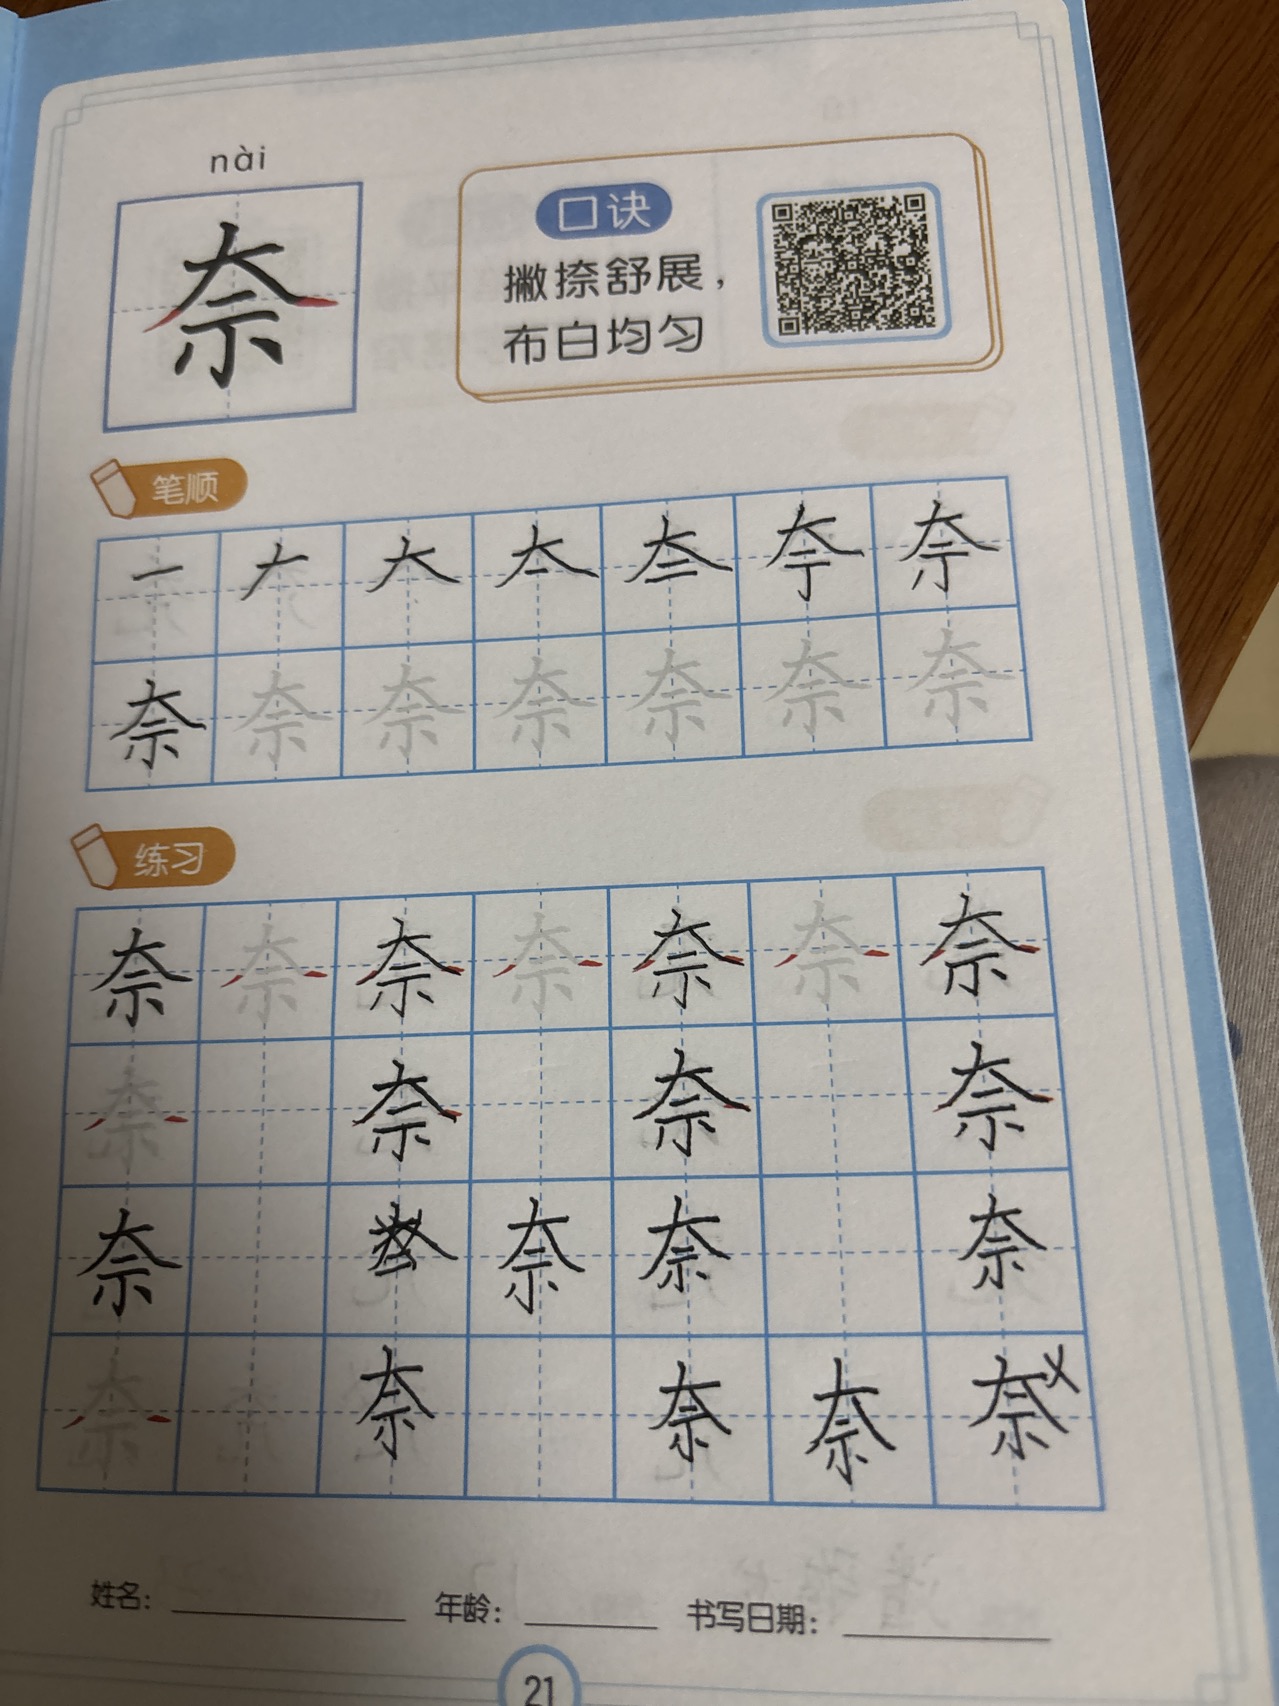 nài
奈
口诀
撇捺舒展，
布白均匀
笔顺
一 ナ 大
奈 奈 奈 奈 奈 奈 奈
练习
奈 奈 奈 奈 奈 奈 奈
奈 奈 奈 奈
奈 奈 奈 奈
奈 奈 奈 奈 奈
姓名： 年龄： 书写日期：
21